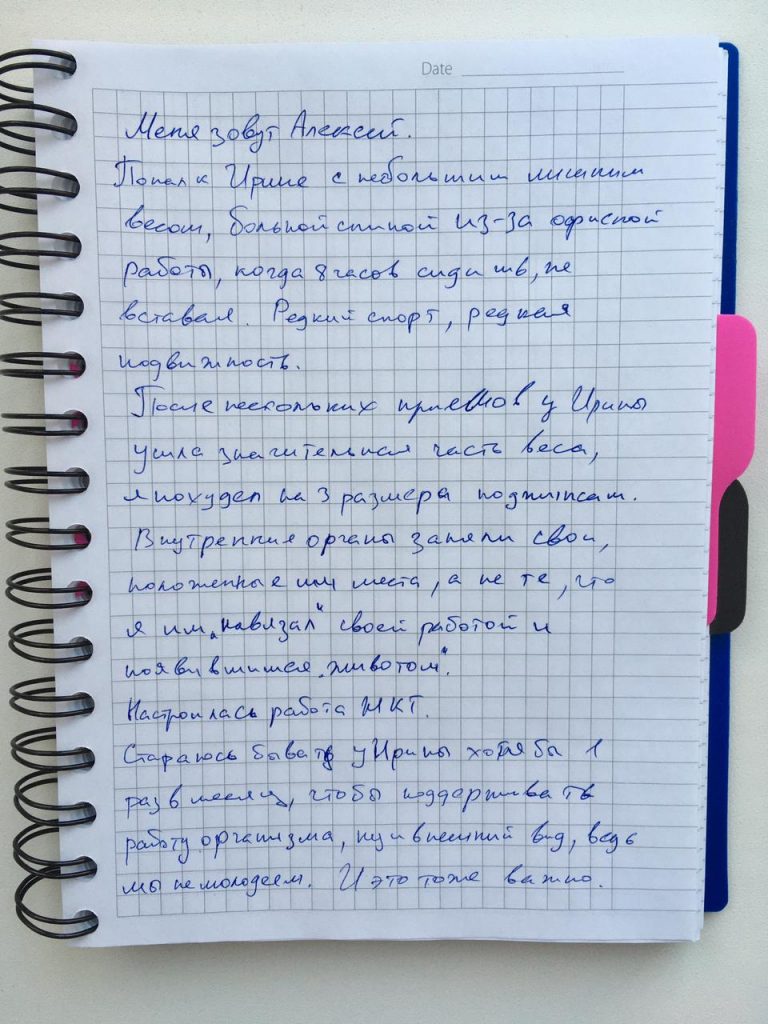 Date
Меня зовут Алексей.
Попал к Ирине с небольшим лишним
весом, больной спиной из-за офисной
работы, когда 8 часов сидишь, не
вставая. Редкий спорт, редкая
подвижность.
После нескольких приемов у Ирины
ушла значительная часть веса,
я похудел на 3 размера по джинсам.
Внутренние органы заняли свои,
положенные им места, а не те, что
я им „навязал" своей работой и
появившимся „животом".
Настроилась работа ЖКТ.
Стараюсь бывать у Ирины хотя бы 1
раз в месяц, чтобы поддерживать
работу организма, ну и внешний вид, ведь
мы не молодеем. И это тоже важно.